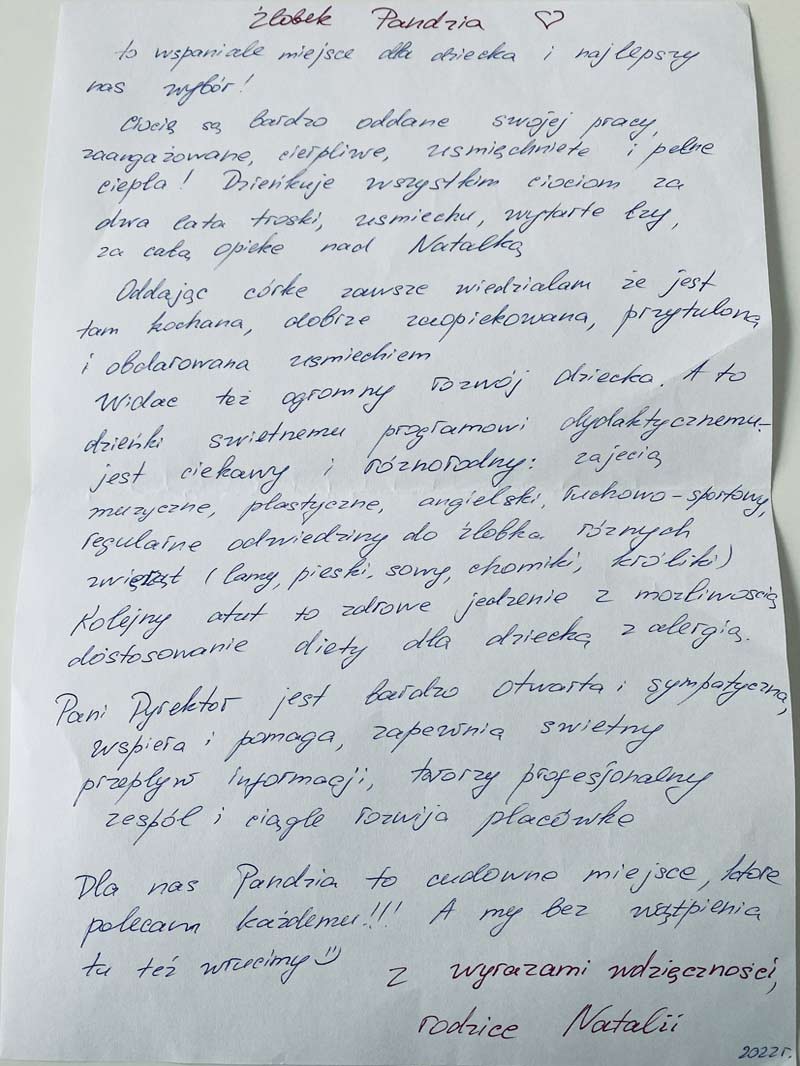 Żłobek Pandzia ♡
to wspaniałe miejsce dla dziecka i najlepszy
nas wybór!
Ciocią są bardzo oddane swojej pracy,
zaangażowane, cierpliwe, usmięchniete i pełne
ciepła! Dzieńkuje wszystkim ciociom za
dwa lata troski, usmiechu, wytarte łzy,
za całą opieke nad Natalką
Oddając córke zawsze wiedziałam że jest
tam kochana, dobrze zaopiekowana, przytuloną
i obdarowana usmiechiem
Widac też ogromny rozwój dziecka. A to
dzieńki swietnemu programowi dydaktycznemu-
jest ciekawy i różnorodny: zajecią
muzyczne, plastyczne, angielski, ruchowo-sportowy,
regularne odwiedziny do żłobka różnych
zwierząt (lamy, pieski, sowy, chomiki, króliki)
Kolejny atut to zdrowe jedzenie z możliwoscią
dostosowanie diety dla dziecką z alergią.
Pani Dyrektor jest bardzo otwarta i sympatyczna,
wspiera i pomaga, zapewnia swietny
przepływ informacji, tworzy profesjonalny
zespół i ciągle rozwija placówke
Dla nas Pandzia to cudowne miejsce, ktore
polecam każdemu!!! A my bez wątpienia
tu też wrucimy :)
z wyrazami wdzięczności,
rodzice Natalii
2022 r.